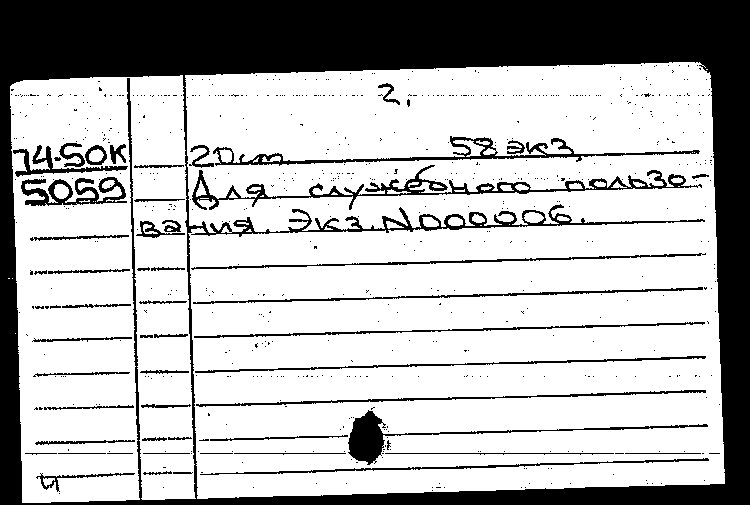 2.
74-50К 20см 58 экз.
5059 Для служебного пользо-
вания. Экз. N000006.